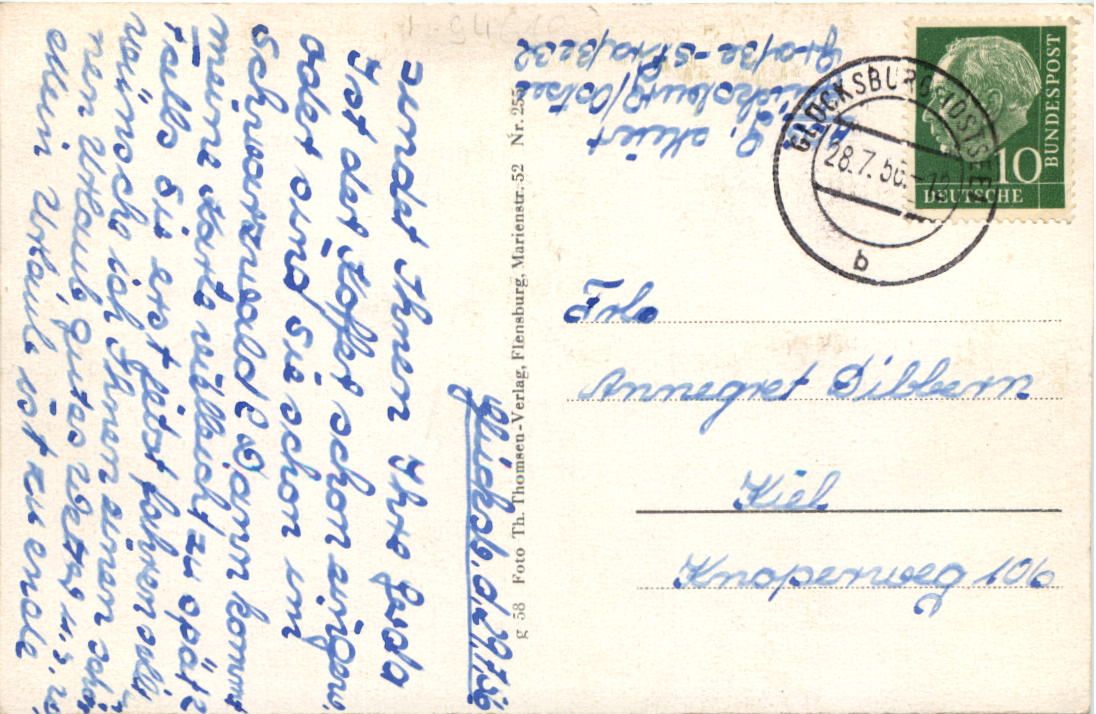 Glücksb. d.
sendet Ihnen Ihre Gerda
Ist der Koffer schon
oder sind Sie schon im
Schwarzwald? Dann kommt
meine Karte vielleicht zu spät.
Falls Sie erst jetzt fahren
wünsche ich Ihnen einen schö
nen Urlaub gutes Wetter u.s.w.
Mein Urlaub ist zu ende
g 58 Foto Th. Thomsen-Verlag, Flensburg, Marienstr. 52 Nr. 255
G.
Glücksburg/Ostsee
Große-Straße 32
GLÜCKSBURG (OSTSEE)
28.7.56.-12
b
10
DEUTSCHE
BUNDESPOST
Frl.
Annegret Dibbern
Kiel
Knooperweg 106